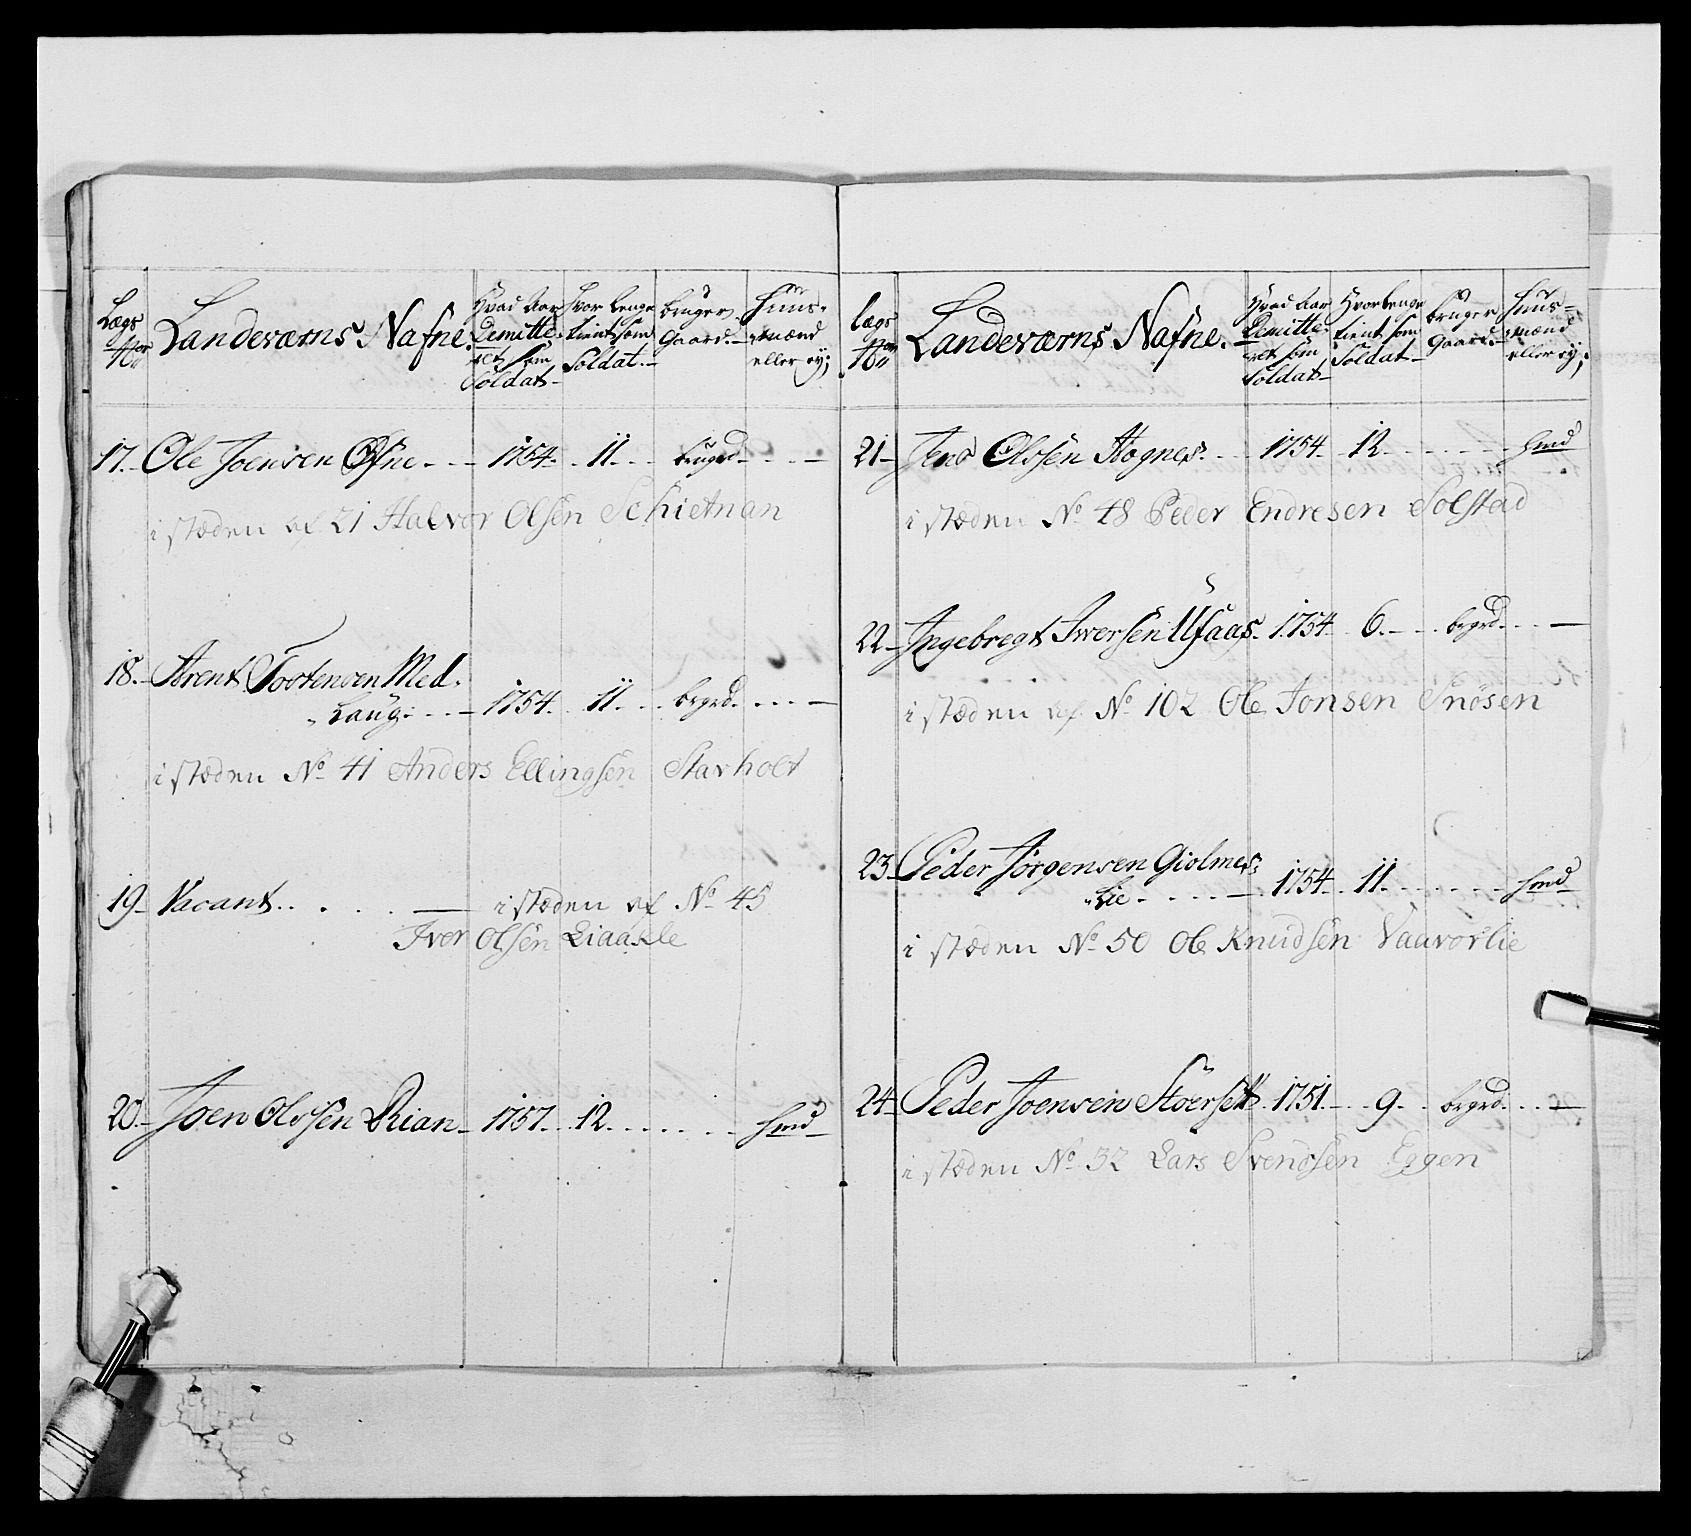 Lægs No Landeværns Nafne. Hvad Aar Demitte- ret som Soldat Hvor lenge tient som Soldat. bruger Gaard. Huus- mænd eller ej;
17. Ole Joensen Øfne 1754. 11. brugrd
i stæden af 21 Halvor Olsen Schietnan
18. Arent Tostensen Med-
laug 1754. 11. brgrd.
i stæden No 41 Anders Ellingsen Stavholt
19. Vacant i stæden af No 45
Iver Olsen Liaakle
20. Joen Olssen Rian 1757. 12. hmd
Lægs No Landeværns Nafne. Hvad Aar Dimitte- ret som Soldat Hvor lenge tient som Soldat bruger Gaard. Huus- mænd eller ej;
21. Jens Olssen Hognes 1754. 12. hmd
i stæden No 48 Peder Endresen Solstad
22. Ingebregt Iversen Ufaas 1754. 6. brgrd.
i stæden af No 102 Ole Jonsen Snøsen
23. Peder Jørgensen Giolmes-
lie 1754. 11. hmd
i stæden No 50 Ole Knudsen Vaavorlie
24. Peder Joensen Støersett 1751. 9. brgrd.
i stæden No 32 Lars Svendsen Eggen